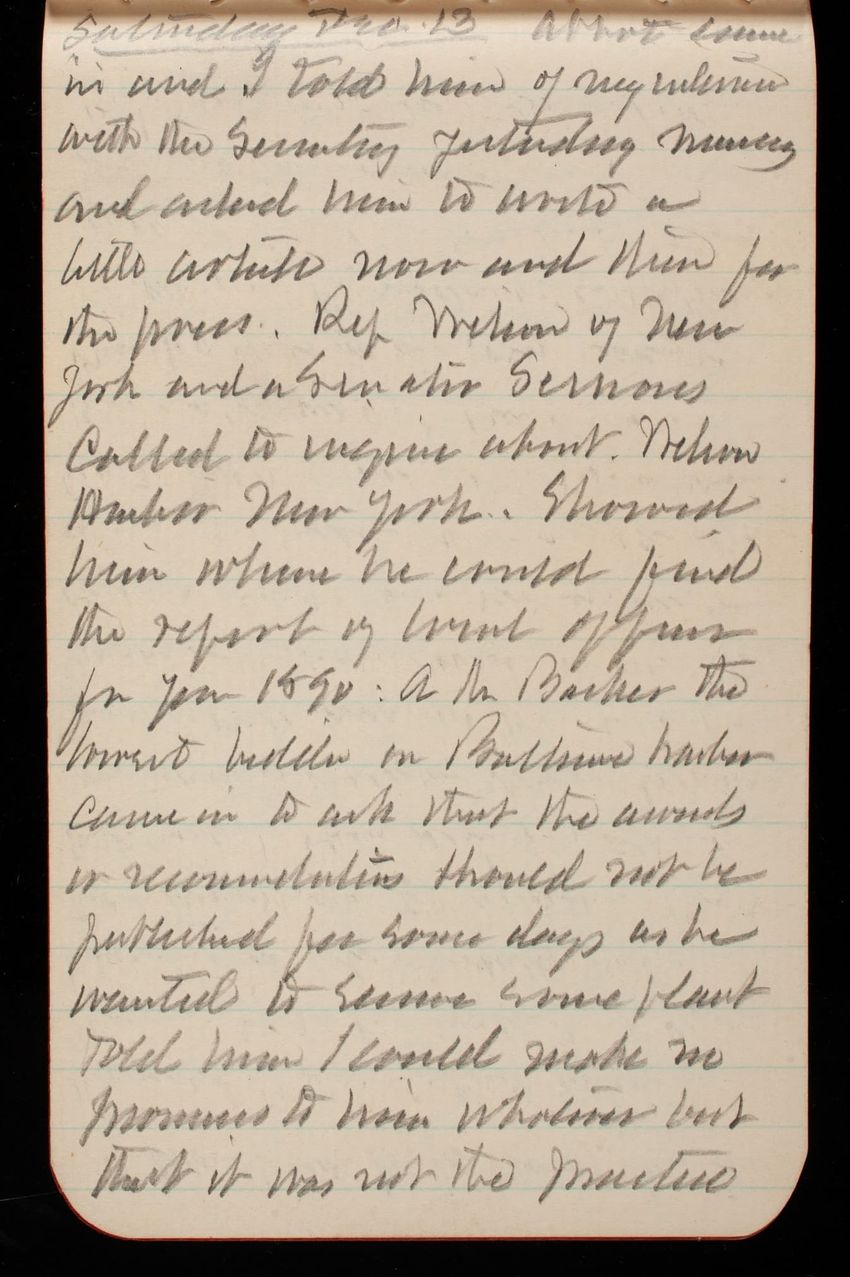 Saturday Dec. 13 Abbot came
in and I told him of
with the Secretary yesterday
and asked him to write a
little article now and then for
the press. Rep Wilson of New
York and a Senator
Called to inquire about. Wilson
Harbor New York. Showed
him where he could find
the report of local officer
for year 1890: A Mr Backer the
lowest bidder on Baltimore harbor
came in to ask that the awards
or recommendations should not be
published for some days as he
wanted to secure some plant
Told him I could make no
promises to him whatever but
that it was not the practice